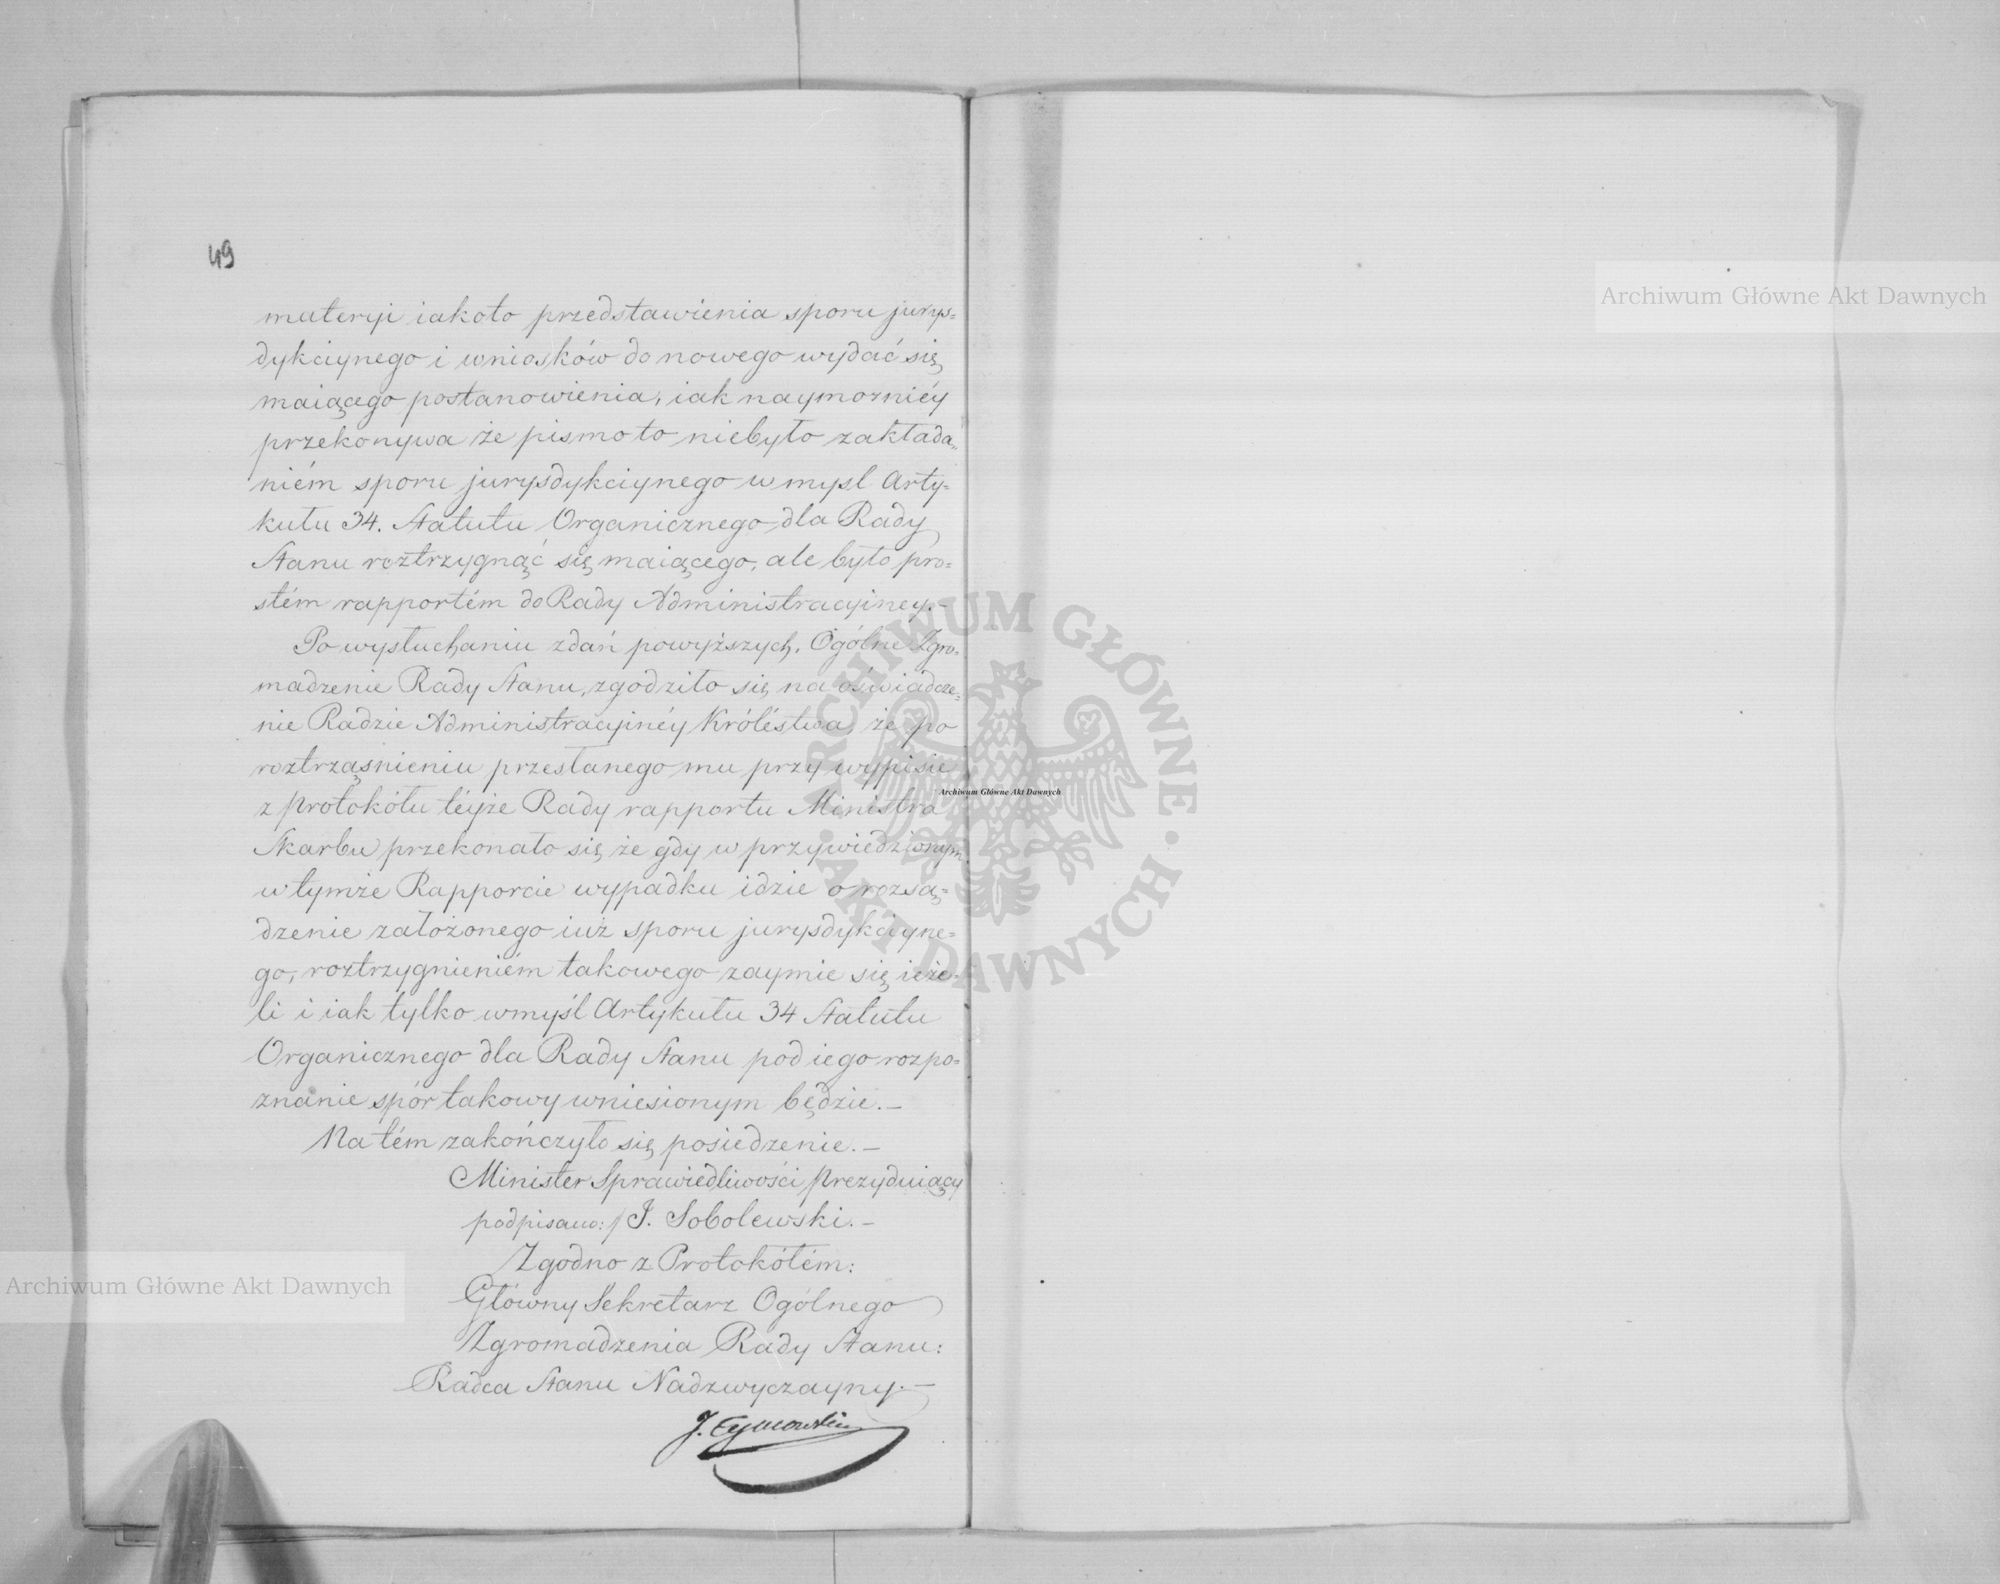 49
materyi iakoto przedstawienia sporu jurys=
dykciynego i wniosków do nowego wydać się
maiącego postanowienia, iak naymocniéy
przekonywa że pismo to niebyło zakłada=
niém sporu jurysdykciynego w mysl Arty=
kułu 34. Statutu Organicznego dla Rady
Stanu roztrzygnąć się maiącego, ale było pro=
stém rapportém do Rady Administracyiney.–
Po wysłuchaniu zdań powyższych, Ogólne Zgro=
madzenie Rady Stanu, zgodziło się na oświadcze=
nie Radzie Administracyinéy Króléstwa, że po
roztrząśnieniu przesłanego mu przy wypisie
z Protokółu téyże Rady rapportu Ministra
Skarbu przekonało się że gdy w przywiedzionym
w tymże Rapporcie wypadku idzie o rozsą=
dzenie założonego iuż sporu jurysdykciyne=
go, roztrzygnieniém takowego zaymie się ieże=
li i iak tylko w myśl Artykułu 34 Statutu
Organicznego dla Rady Stanu pod iego rozpo=
znanie spór takowy wniesionym będzie.–
Na tém zakończyło się posiedzenie.–
Minister Sprawiedliwości Prezyduiący
podpisano:/ J. Sobolewski.–
Zgodno z Protokółém:
Główny Sekretarz Ogólnego
Zgromadzenia Rady Stanu:
Radca Stanu Nadzwyczayny.–
Archiwum Główne Akt Dawnych
Archiwum Główne Akt Dawnych
Archiwum Główne Akt Dawnych
ARCHIWUM GŁÓWNE
AKT DAWNYCH